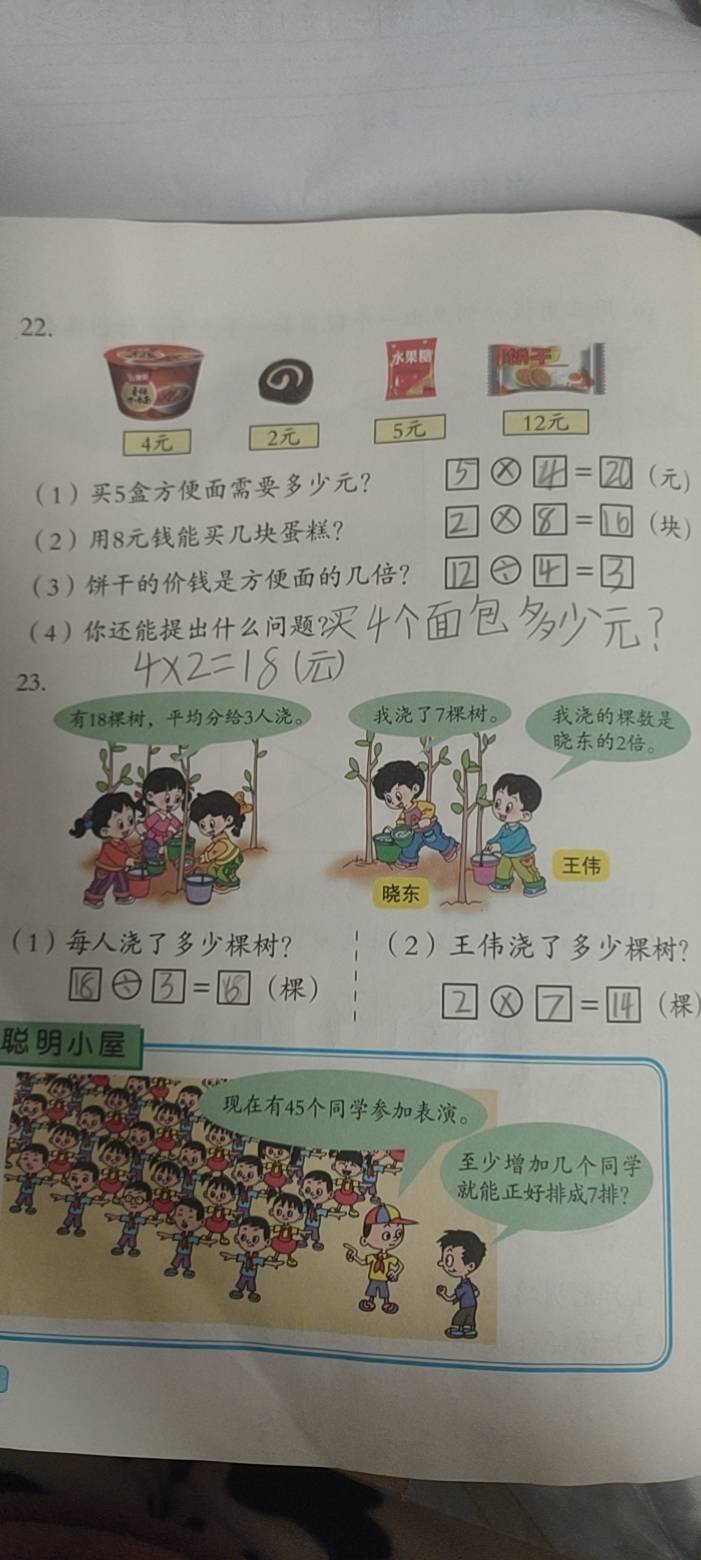 22.
水果糖
饼干
4元 2元 5元 12元
(1) 买5盒方便面需要多少元? 5×4=20 (元)
(2) 用8元钱能买几块蛋糕? 2×8=16 (块)
(3) 饼干的价钱是方便面的几倍? 12÷4=3
(4) 你还能提出什么问题?买4个面包多少元?
4×2=18(元)
23.
有18棵树，平均分给3人浇。
我浇了7棵树。
我浇的棵数是
晓东的2倍。
王伟
晓东
(1) 每人浇了多少棵树? (2) 王伟浇了多少棵树?
18÷3= (棵) 2×7=14 (棵)
聪明小屋
现在有45个同学参加表演。
至少增加几个同学
就能正好排成7排?